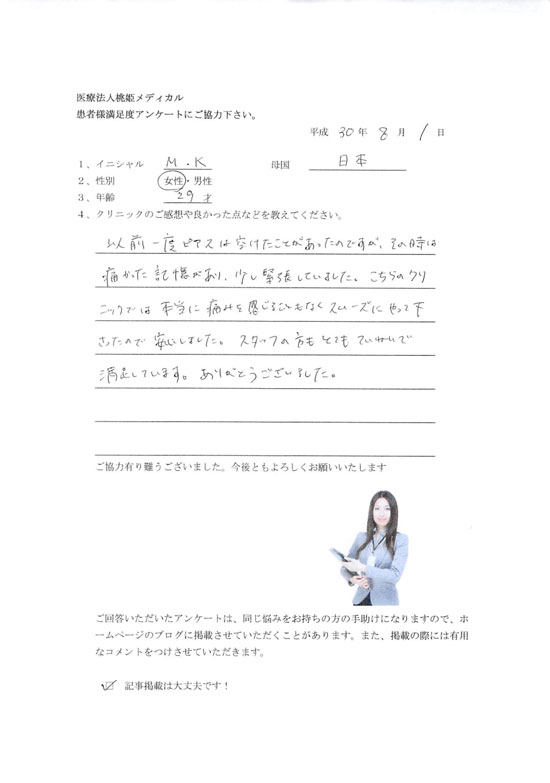 医療法人桃姫メディカル
患者様満足度アンケートにご協力下さい。
平成 30 年 8 月 1 日
1、イニシャル M.K 母国 日本
2、性別 女性・男性
3、年齢 29才
4、クリニックのご感想や良かった点などを教えてください。
以前一度ピアスは空けたことがあったのですが、その時は
痛かった記憶があり、少し緊張していました。こちらのクリ
ニックでは本当に痛みを感じることもなくスムーズにやって下
さったので安心しました。スタッフの方もとてもていねいで
満足しています。ありがとうございました。
ご協力有り難うございました。今後ともよろしくお願いいたします
ご回答いただいたアンケートは、同じ悩みをお持ちの方の手助けになりますので、ホ
ームページのブログに掲載させていただくことがあります。また、掲載の際には有用
なコメントをつけさせていただきます。
☑ 記事掲載は大丈夫です！